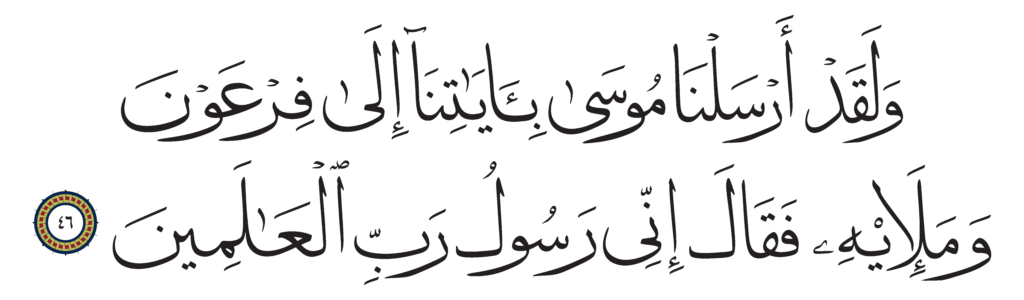 وَلَقَدْ أَرْسَلْنَا مُوسَىٰ بِـَٔايَـٰتِنَآ إِلَىٰ فِرْعَوْنَ
وَمَلَإِي۟هِۦ فَقَالَ إِنِّى رَسُولُ رَبِّ ٱلْعَـٰلَمِينَ ٤٦